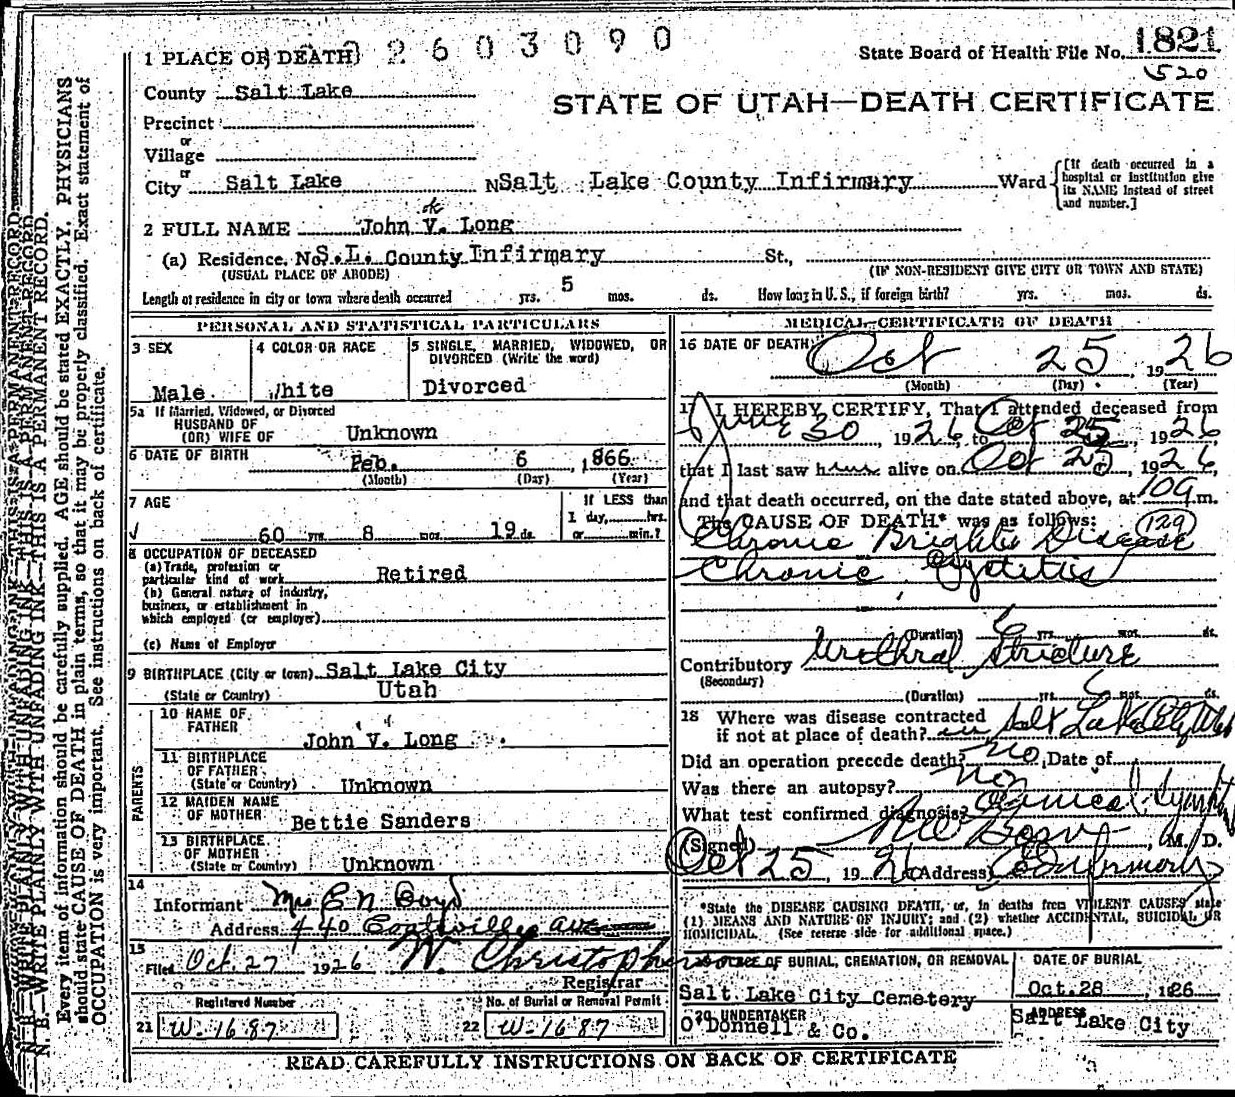 2603090
State Board of Health File No. 1821
520
1 PLACE OF DEATH
County Salt Lake
STATE OF UTAH—DEATH CERTIFICATE
Precinct
or
Village
or
City Salt Lake N Salt Lake County Infirmary Ward [If death occurred in a hospital or institution give its NAME instead of street and number.]
ok
2 FULL NAME John V. Long
(a) Residence, No. S.L. County Infirmary St.,
(USUAL PLACE OF ABODE) (IF NON-RESIDENT GIVE CITY OR TOWN AND STATE)
Length of residence in city or town where death occurred yrs. 5 mos. ds. How long in U. S., if foreign birth? yrs. mos. ds.
PERSONAL AND STATISTICAL PARTICULARS
3 SEX
Male
4 COLOR OR RACE
White
5 SINGLE, MARRIED, WIDOWED, OR
DIVORCED (Write the word)
Divorced
5a If Married, Widowed, or Divorced
HUSBAND OF
(OR) WIFE OF Unknown
6 DATE OF BIRTH Feb. 6, 1866
(Month) (Day) (Year)
7 AGE
60 yrs. 8 mos. 19 ds.
If LESS than
1 day, hrs.
or min.?
8 OCCUPATION OF DECEASED
(a) Trade, profession or
particular kind of work Retired
(b) General nature of industry,
business, or establishment in
which employed (or employer)
(c) Name of Employer
9 BIRTHPLACE (City or town) Salt Lake City
(State or Country) Utah
PARENTS
10 NAME OF
FATHER John V. Long
11 BIRTHPLACE
OF FATHER
(State or Country) Unknown
12 MAIDEN NAME
OF MOTHER Bettie Sanders
13 BIRTHPLACE
OF MOTHER
(State or Country) Unknown
14
Informant Mrs E N Boyd
Address 440 ave
15
Filed Oct. 27 1926 W. Christopherson
Registrar
Registered Number
21 W-1687
No. of Burial or Removal Permit
22 W-1687
MEDICAL CERTIFICATE OF DEATH
16 DATE OF DEATH Oct 25, 1926
(Month) (Day) (Year)
17 I HEREBY CERTIFY, That I attended deceased from
June 30, 1926, to Oct 25, 1926
that I last saw him alive on Oct 25, 1926,
and that death occurred, on the date stated above, at 10a m.
The CAUSE OF DEATH* was as follows: 129
Chronic Brights Disease
Chronic Cystitis
(Duration) 6 yrs. mos. ds.
Contributory Urethral Stricture
(Secondary)
(Duration) yrs. 6 mos. ds.
18 Where was disease contracted
if not at place of death? in Salt Lake City Utah
Did an operation precede death? no Date of
Was there an autopsy? no
What test confirmed diagnosis? Clinical Sympt
(Signed) M. D.
Oct 25, 1926 (Address) Co Infirmary
*State the DISEASE CAUSING DEATH, or, in deaths from VIOLENT CAUSES state
(1) MEANS AND NATURE OF INJURY; and (2) whether ACCIDENTAL, SUICIDAL OR
HOMICIDAL. (See reverse side for additional space.)
OF BURIAL, CREMATION, OR REMOVAL
Salt Lake City Cemetery
DATE OF BURIAL
Oct. 28, 1926
20 UNDERTAKER
O'Donnell & Co.
ADDRESS
Salt Lake City
READ CAREFULLY INSTRUCTIONS ON BACK OF CERTIFICATE
N. B.—WRITE PLAINLY WITH UNFADING INK—THIS IS A PERMANENT RECORD.
Every item of information should be carefully supplied. AGE should be stated EXACTLY. PHYSICIANS
should state CAUSE OF DEATH in plain terms, so that it may be properly classified. Exact statement of
OCCUPATION is very important. See instructions on back of certificate.